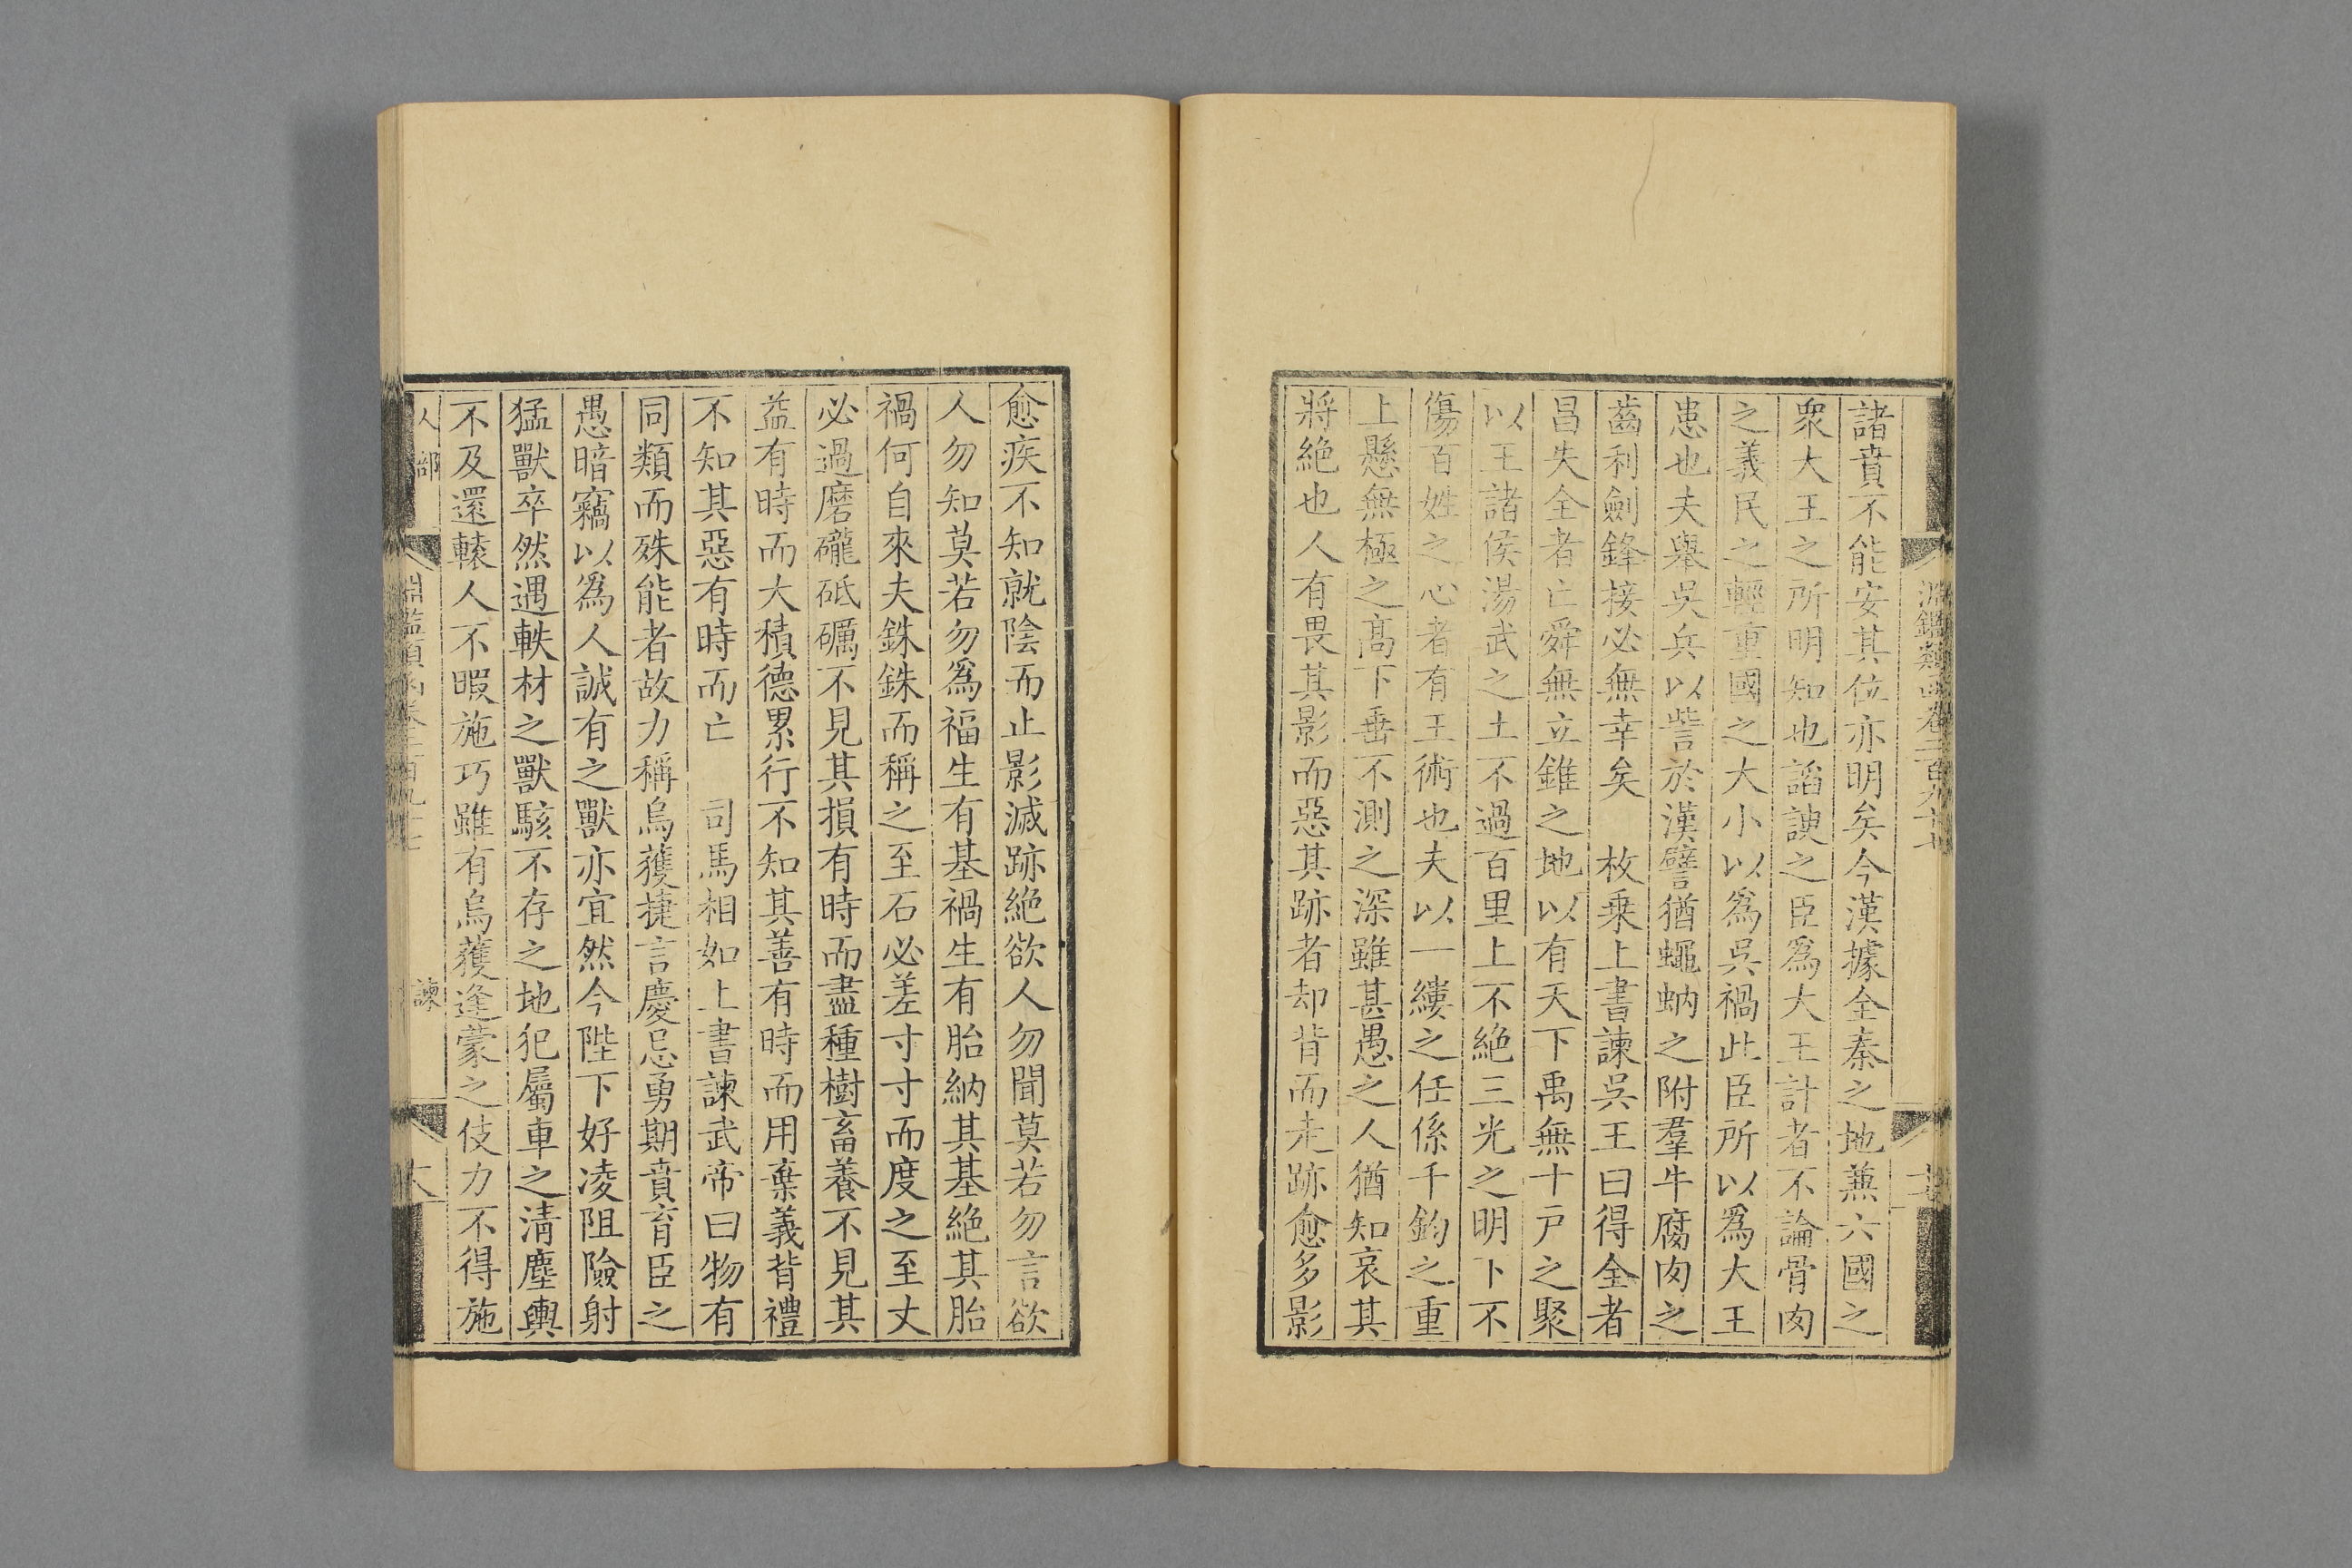 淵鑑類函卷二百九十七
諸賁不能安其位亦明矣今漢據全秦之地兼六國之
衆大王之所明知也諂諛之臣爲大王計者不論骨肉
之義民之輕重國之大小以爲吳禍此臣所以爲大王
患也夫舉吳兵以訾於漢譬猶蠅蚋之附羣牛腐肉之
齒利劍鋒接必無幸矣　枚乗上書諫吳王曰得全者
昌失全者亡舜無立錐之地以有天下禹無十戸之聚
以王諸侯湯武之土不過百里上不絶三光之明下不
傷百姓之心者有王術也夫以一縷之任係千鈞之重
上懸無極之高下垂不測之深雖甚愚之人猶知哀其
將絶也人有畏其影而惡其跡者却背而走跡愈多影
愈疾不知就陰而止影滅跡絶欲人勿聞莫若勿言欲
人勿知莫若勿爲福生有基禍生有胎納其基絶其胎
禍何自來夫銖銖而稱之至石必差寸寸而度之至丈
必過磨礲砥礪不見其損有時而盡種樹畜養不見其
益有時而大積德累行不知其善有時而用棄義背禮
不知其惡有時而亡　司馬相如上書諫武帝曰物有
同類而殊能者故力稱烏獲捷言慶忌勇期賁育臣之
愚暗竊以爲人誠有之獸亦宜然今陛下好凌阻險射
猛獸卒然遇軼材之獸駭不存之地犯屬車之清塵輿
不及還轅人不暇施巧雖有烏獲逢蒙之伎力不得施
人部　淵鑑類函卷二百九十七　諫